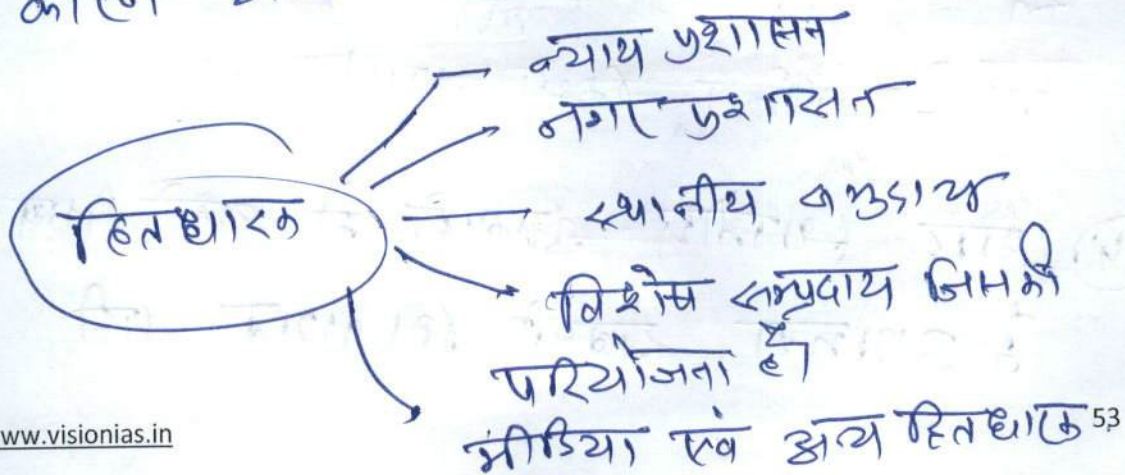 न्याय प्रशासन
नगर प्रशासन
हितधारक
स्थानीय समुदाय
विशेष सम्प्रदाय जिसकी
परियोजना है।
मीडिया एवं अन्य हितधारक
www.visionias.in
53